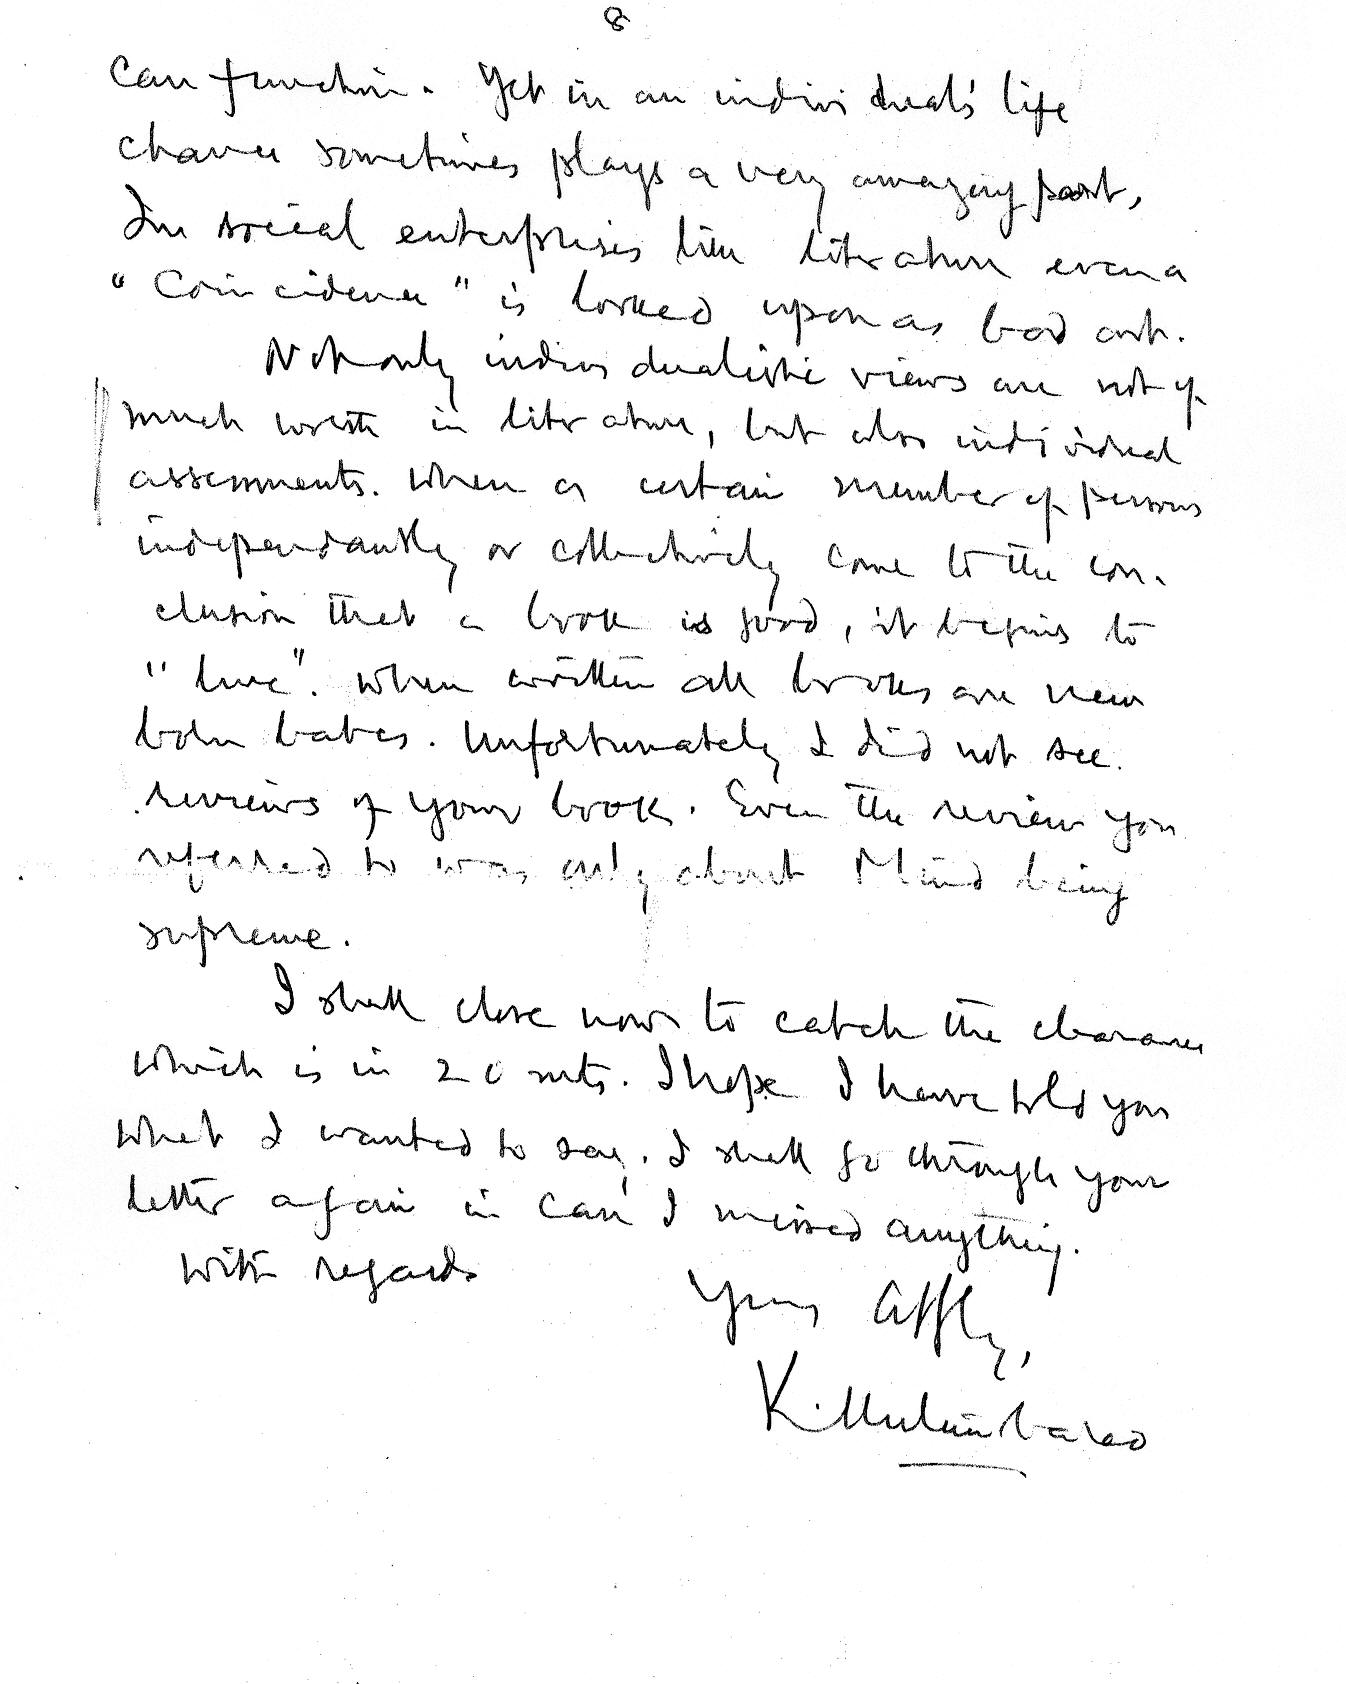 8
can function. Yet in an individual's life
chance sometimes plays a very amazing part,
In social enterprises like literature even a
"Coincidence" is looked upon as bad art.
Not only individualistic views are not of
much worth in literature, but also individual
assessments. When a certain number of persons
independantly or collectively come to the con-
clusion that a book is good, it begins to
"live". When written all books are new
born babes. Unfortunately I did not see
reviews of your book. Even the review you
referred to was only about Mind being
supreme.
I shall close now to catch the clearance
which is in 20 mts. I hope I have told you
what I wanted to say. I shall go through your
letter again in case I missed anything.
With regards
Yours affly,
K.